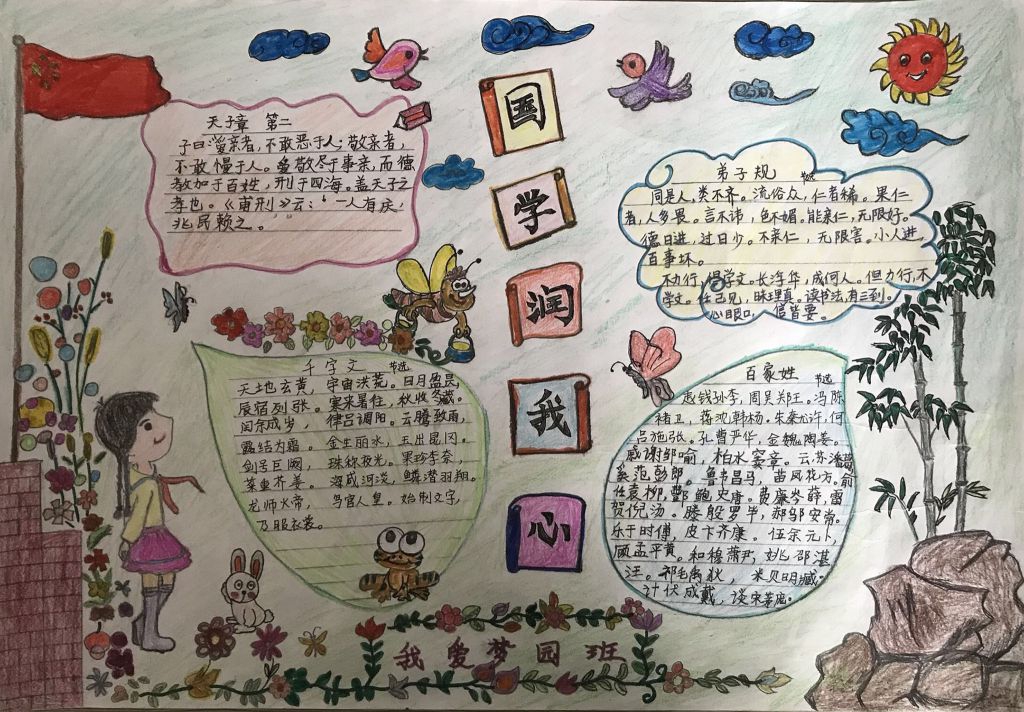 国
学
润
我
心
天子章 第二
子曰:爱亲者,不敢恶于人;敬亲者,
不敢慢于人。爱敬尽于事亲,而德
教加于百姓,刑于四海。盖天子之
孝也。《甫刑》云:“一人有庆,
兆民赖之。
弟子规 节选
同是人,类不齐。流俗众,仁者稀。果仁
者,人多畏。言不讳,色不媚。能亲仁,无限好。
德日进,过日少。不亲仁,无限害。小人进,
百事坏。
不力行,但学文。长浮华,成何人。但力行,不
学文。任己见,昧理真。读书法,有三到。
心眼口,信皆要。
千字文 节选
天地玄黄,宇宙洪荒。日月盈昃,
辰宿列张。寒来暑往,秋收冬藏。
闰余成岁,律吕调阳。云腾致雨,
露结为霜。金生丽水,玉出昆冈。
剑号巨阙,珠称夜光。果珍李柰,
菜重芥姜。海咸河淡,鳞潜羽翔。
龙师火帝,鸟官人皇。始制文字,
乃服衣裳。
百家姓 节选
赵钱孙李,周吴郑王。冯陈
褚卫,蒋沈韩杨。朱秦尤许,何
吕施张。孔曹严华,金魏陶姜。
戚谢邹喻,柏水窦章。云苏潘葛,
奚范彭郎。鲁韦昌马,苗凤花方。俞
任袁柳,酆鲍史唐。费廉岑薛,雷
贺倪汤。滕殷罗毕,郝邬安常。
乐于时傅,皮卞齐康。伍余元卜,
顾孟平黄。和穆萧尹,姚邵湛
汪。祁毛禹狄,米贝明臧。
计伏成戴,谈宋茅庞。
我爱梦园班